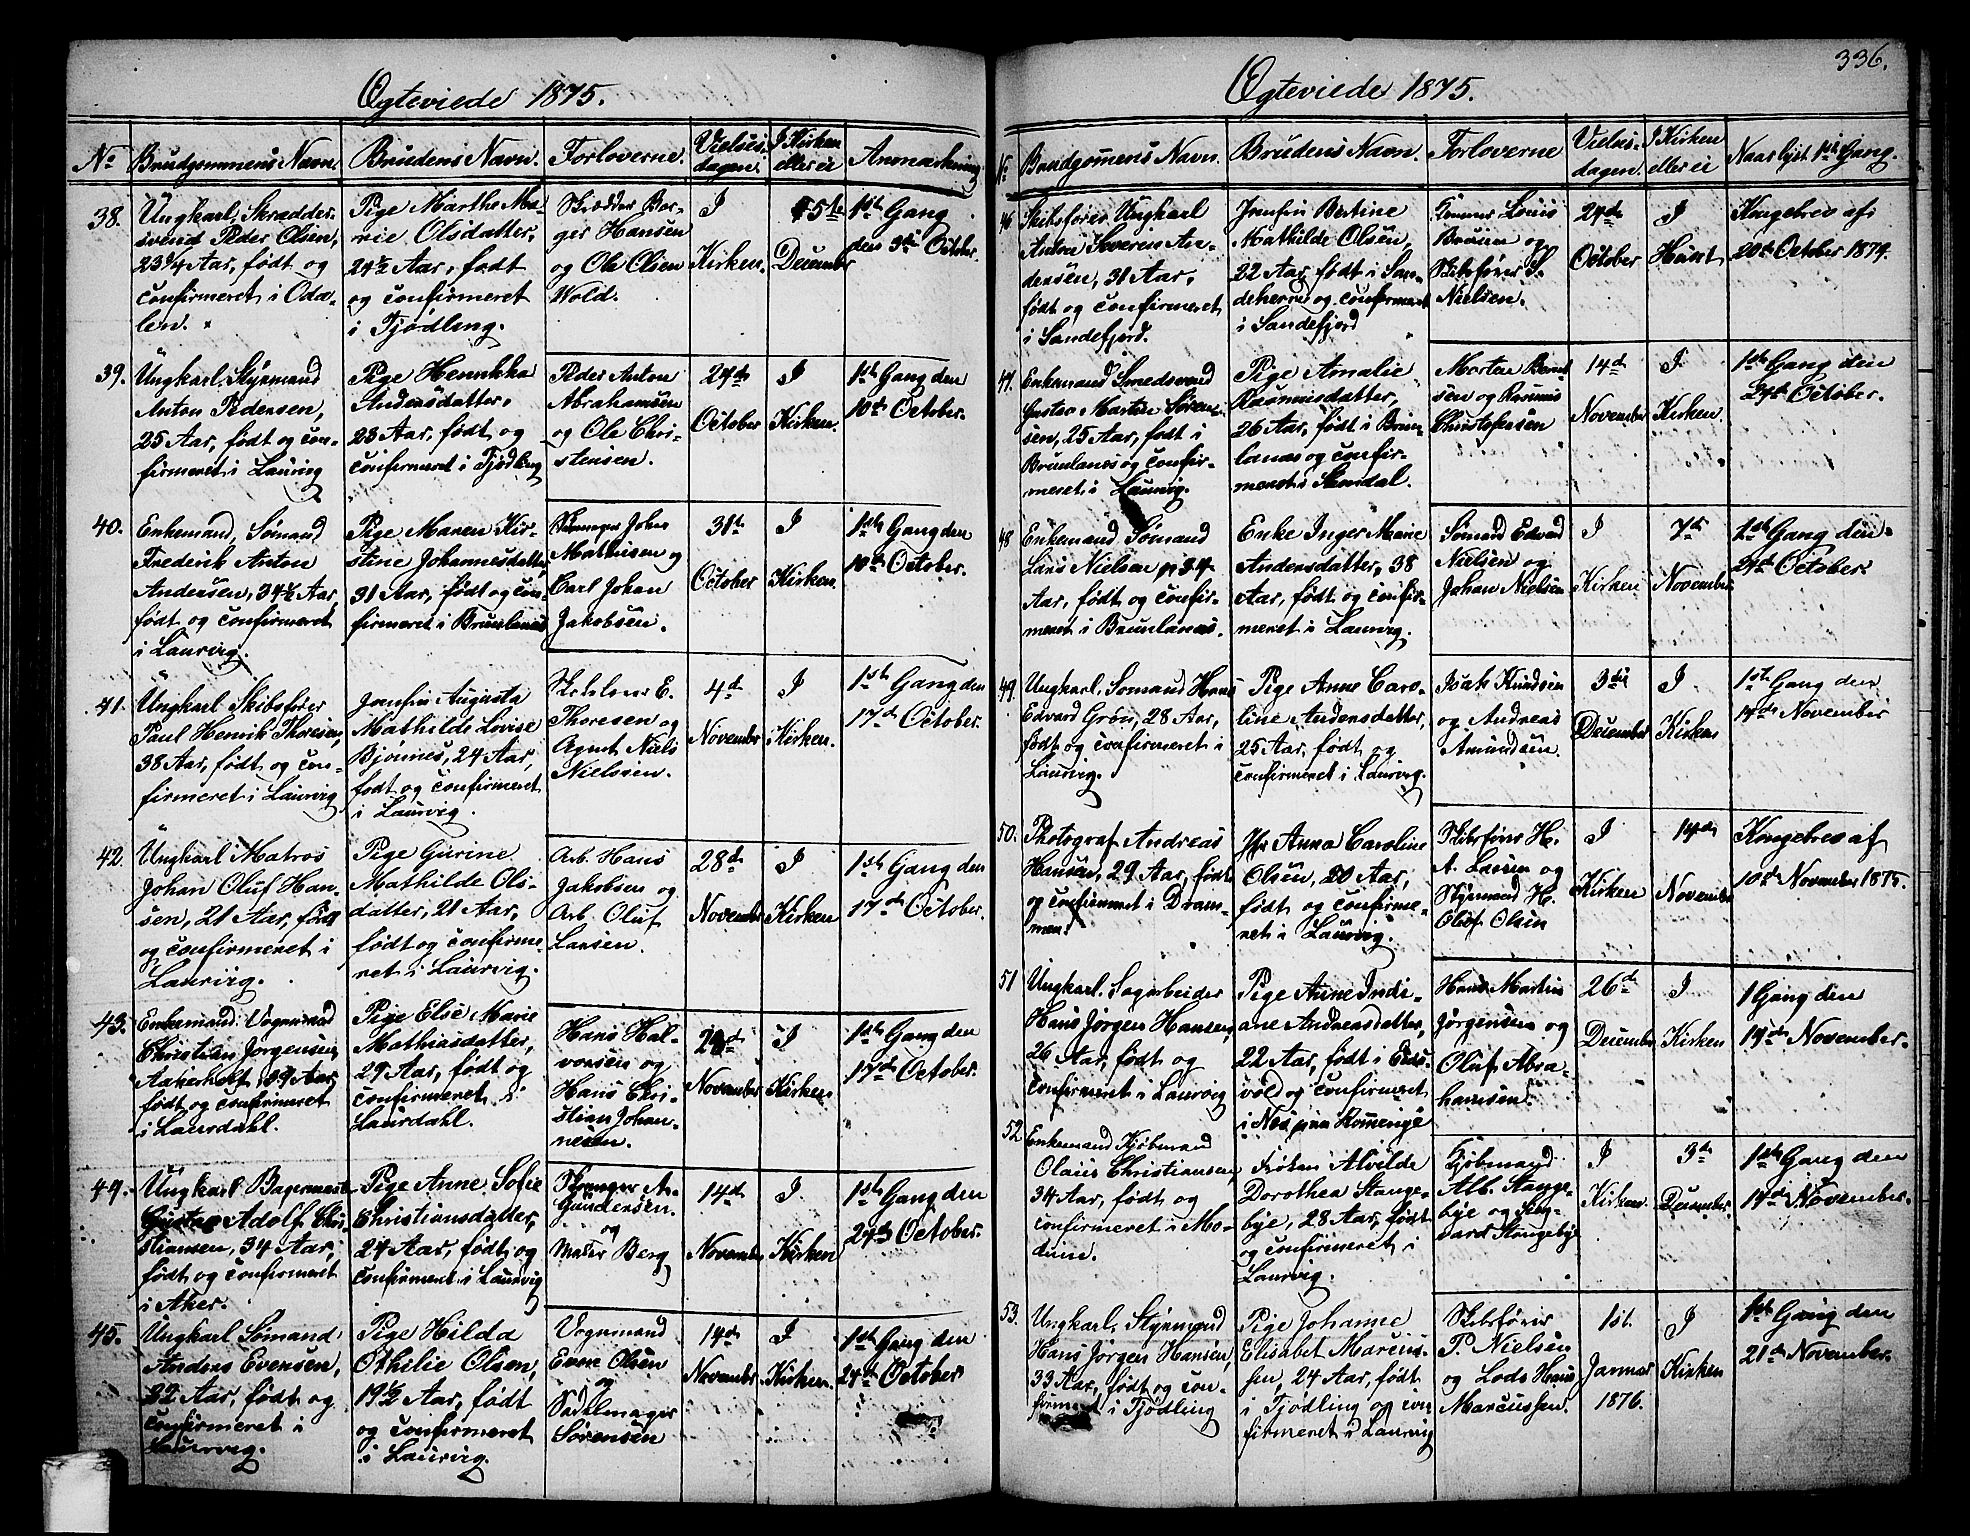 336.
Egteviede 1875.
No
Brudgommens Navn.
Brudens Navn.
Forloverne.
Vielses-
dagen.
I Kirken
eller ei
Anmærkning
38.
Ungkarl, Skrædder-
svend Peder Olsen,
23 3/4 Aar, født og
confirmeret i Oda-
len.
Pige Marthe Ma-
rie Olsdatter,
24 1/2 Aar, født
og confirmeret
i Tjødling.
Skrædder Bør-
ger Hansen
og Ole Olsen
Wold.
I
Kirken.
5te
December
1ste Gang
den 3die October.
39.
Ungkarl, Styrmand
Anton Pedersen,
25 Aar, født og con-
firmeret i Laurvig
Pige Henrikka
Andersdatter,
23 Aar, født og
confirmeret i Tjødling
Peder Anton
Abrahamsen
og Ole Chri-
stensen.
24de
October
I
Kirken.
1ste Gang den
10de October.
40.
Enkemand, Sømand
Frederik Anton
Andersen, 34 1/2 Aar,
født og confirmeret
i Laurvig.
Pige Maren Kir-
stine Johannesdatter,
31 Aar, født og con-
firmeret i Brunlanæs
John
Mathisen og
Carl Johan
Jakobsen.
31te
October
I
Kirken.
1ste Gang den
10de October.
41.
Ungkarl Skibsfører
Paul Henrik Thoresen,
38 Aar, født og con-
firmeret i Laurvig
Jomfru Augusta
Mathilde Lovise
Bjønnes, 24 Aar,
født og confirmeret
i Laurvig.
E.
Thoresen og
Agent Niels
Nielssen.
4de
November
I
Kirken.
1ste Gang den
17de October.
42.
Ungkarl Matros
Johan Oluf Han-
sen, 21 Aar, født
og confirmeret i
Laurvig.
Pige Gurine
Mathilde Ols-
datter, 21 Aar,
født og confirme-
ret i Laurvig.
Arb. Hans
Jakobsen og
Arb. Oluf
Larsen.
28de
November
I
Kirken
1ste Gang den
17de October.
43.
Enkemand Vognmand
Christian Jørgensen
Aakerholt, 39 Aar,
født og confirmeret
i Laurdahl.
Pige Else Marie
Mathiasdatter,
29 Aar, født og
confirmeret i
Laurdahl.
Hans Hal-
vorsen og
Hans Chri-
stian Johan-
nesen.
28de
November
I
Kirken
1ste Gang den
17de October.
44.
Ungkarl Bagermester
Gustav Adolf Chri-
stiansen, 34 Aar,
født og confirmeret
i Aker.
Pige Anne Sofie
Christiansdatter,
24 Aar, født og
confirmeret i Laurvig
A.
Gundersen,
og
Maler Berg
14de
November
I
Kirken
1ste Gang den
24de October.
45.
Ungkarl Sømand
Anders Evensen,
22 Aar, født og
confirmeret i
Laurvig.
Pige Hilda
Othelie Olsen,
19 1/2 Aar, født
og confirmeret
i Laurvig.
Vognmand
Evne Olsen
og
Sadelmager
Sørensen
14de
November
I
Kirken.
1ste Gang den
24de October
Egteviede 1875.
N.
Brudgomens Navn.
Brudens Navn.
Forloverne
Vielses-
dagen.
I Kirken
eller ei
Naar lyst 1ste Gang.
46
Skibsfører Ungkarl
Anton Severin An-
dersen, 31 Aar,
født og confirmeret
i Sandefjord.
Jomfru Bertine
Mathilde Olsen,
22 Aar, født i San-
deherre og confirmeret
i Sandefjord
Louis
Bruun og
Skibsfører S.
Nielsen.
24de
October
I
Huset
Kongebrev af
20de October 1874.
47.
Enkemand Smedsvend
Gustav Martin Søren-
sen, 25 Aar, født i
Brunlanæs og confir-
meret i Laurvig.
Pige Amalie
Rasmusdatter,
26 Aar, født i Brun-
lanæs og confir-
meret i
Morten Bernt
sen og Rasmus
Christofersen
14de
November
I
Kirken
1ste Gang den
24de October.
48
Enkemand Sømand
Lars Nielsen, 34
Aar, født og confir-
meret i Brunlanæs.
Enke Inger Marie
Andersdatter, 38
Aar, født og confir-
meret i Laurvig.
Sømand Edvard
Nielsen og
Johan Nielsen
I
Kirken
7de
November
1ste Gang den
24de October.
49.
Ungkarl, Sømand Hans
Edvard Grøn, 28 Aar,
født og confirmeret i
Laurvig.
Pige Anne Caro-
line Andersdatter,
25 Aar, født og
confirmeret i Laurvig.
Isak Knudsen
og Andreas
Amundsen.
3die
December
I
Kirken
1ste Gang den
14de November
50.
Photograf Andreas
Hansen, 29 Aar, født
og confirmeret i Dram-
men.
Jfr Anna Caroline
Olsen, 20 Aar,
født og confirme-
ret i Laurvig.
Skibsfører H.
A. Larsen og
Styrmand H.
Olof Olsen
I
Kirken
14de
November
Kongebrev af
10de November 1875.
51
Ungkarl. Sagarbeider
Hans Jørgen Hansen,
26 Aar, født og
confirmeret i Laurvig
Pige Anne Indi-
ane Andreasdatter,
22 Aar, født i Eids-
vold og confirmeret
i Næs paa Romerige
Hans Martin
Jørgensen og
Oluf Abra-
hamsen.
26de
December
I
Kirken
1 Gang den
14de November.
52
Enkemand Kjøbmand
Olaus Christiansen,
34 Aar, født og
confirmeret i Mo-
dum.
Frøken Alvilde
Dorothea Stange-
bye, 28 Aar, født
og confirmeret i
Laurvig.
Kjøbmand
Alb. Stange-
bye og
vard Stangebye
I
Kirken.
3de
December.
1ste Gang den
14de November.
53.
Ungkarl, Styrmand
Hans Jørgen Hansen,
33 Aar, født og con-
firmeret i Tjødling
Pige Johanne
Elisabet Marcus-
sen, 24 Aar, født
i Tjødling og con
firmeret i Laurvig
Skibsfører
P. Nielsen
og Lods Hans
Marcussen.
1st.
Januar
1876.
I
Kirken
1ste Gang den
21de November.